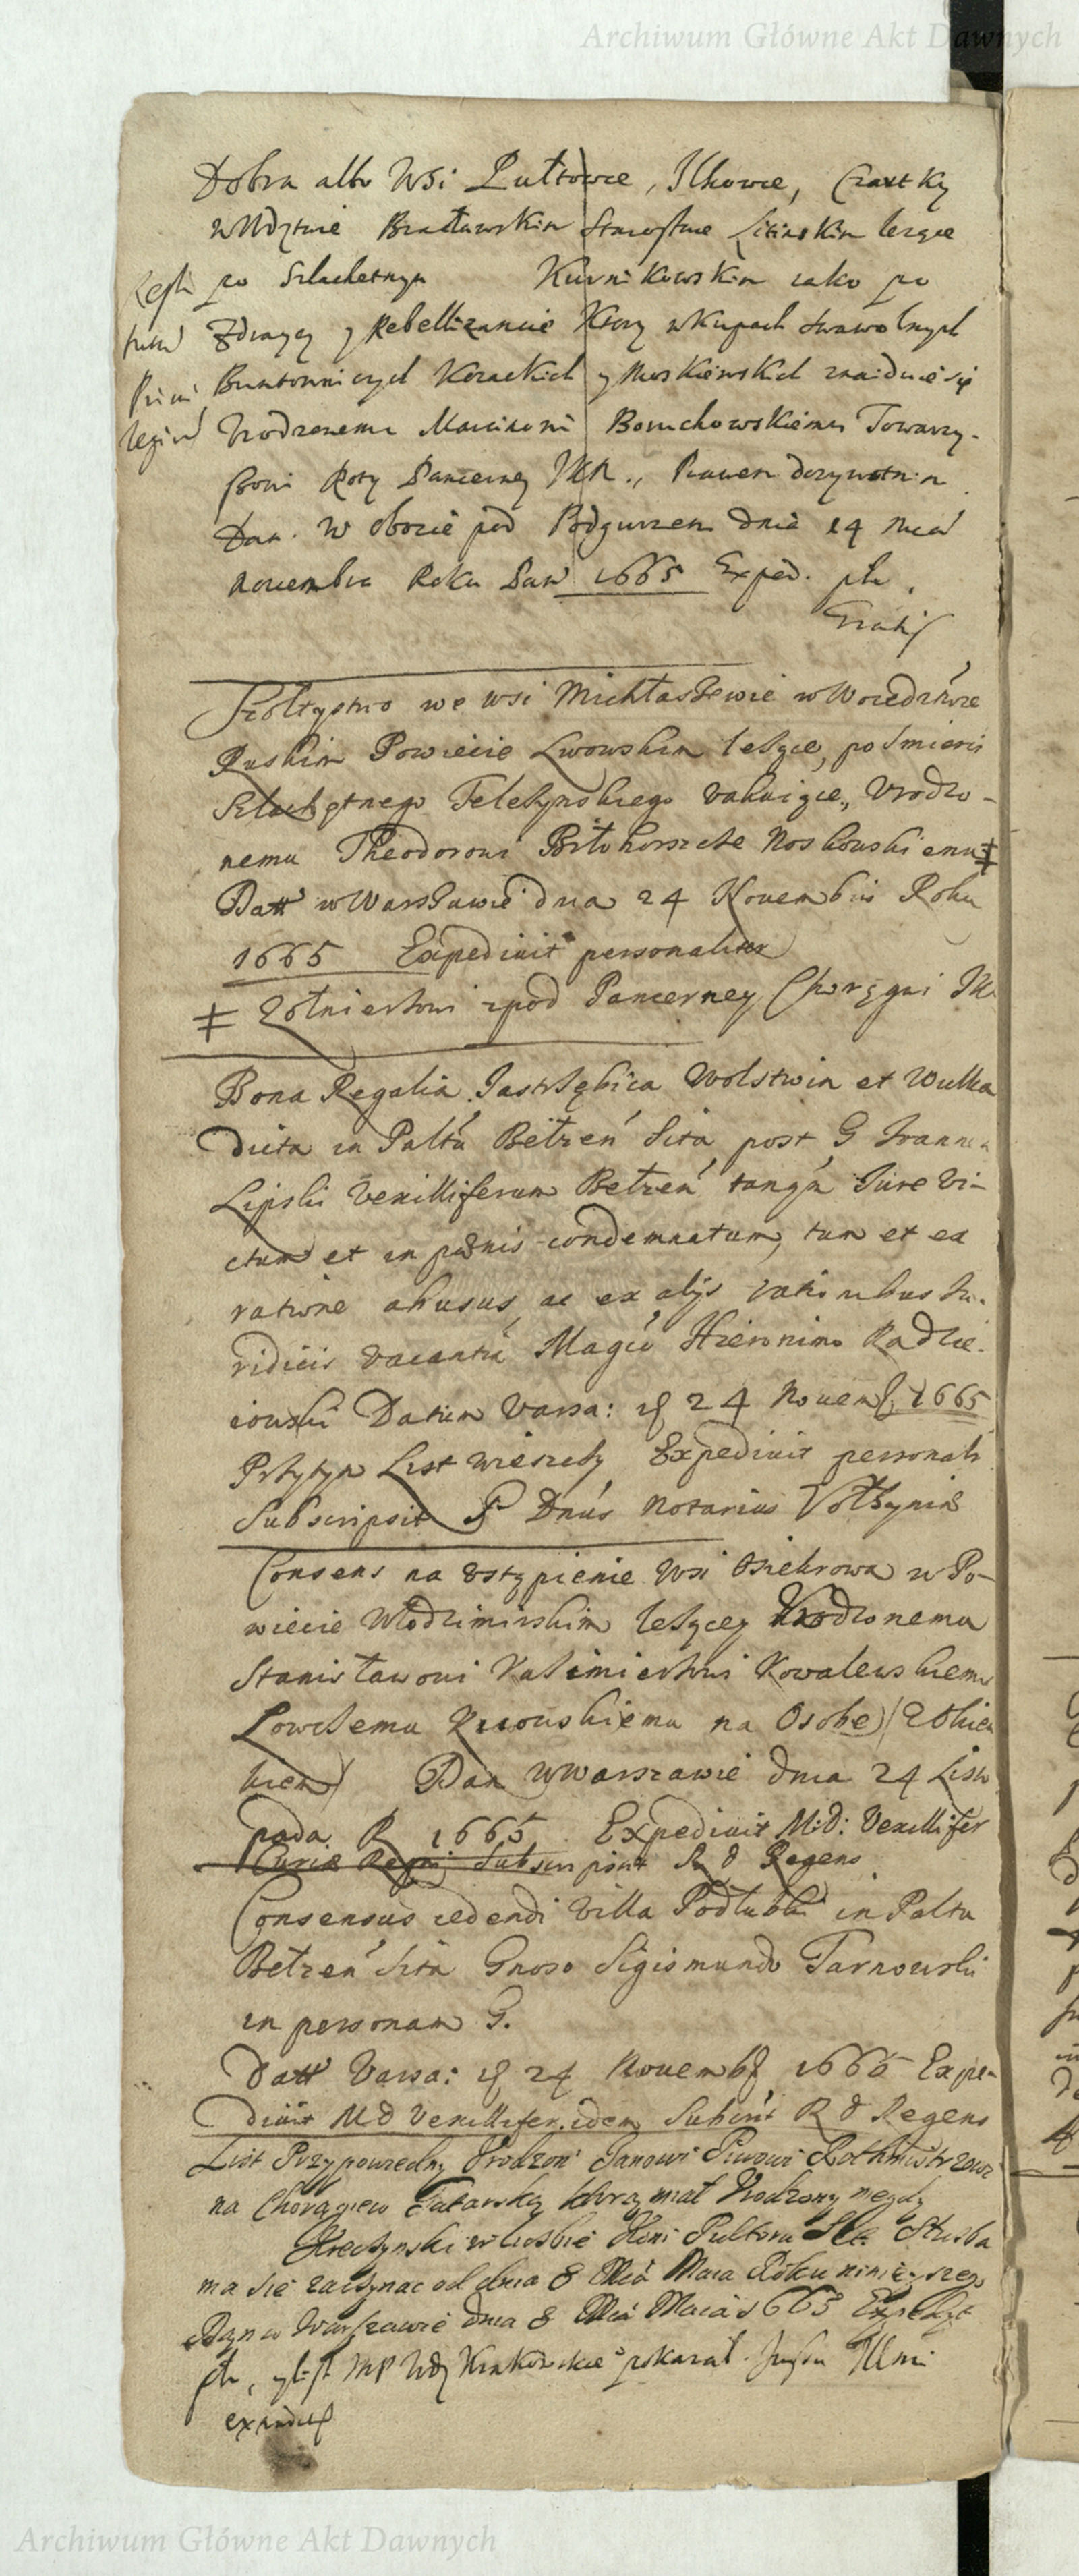 Archiwum Główne Akt Dawnych
Dobra albo Wsi Pułtowce, Ilkowce, Czastky
w Wdztwie Bracławskim Starostwie Litinskim lezące
po Szlachetnym Kurnikowskim iako po
Zdraycy y Rebellizancie Ktory w Kupach swawolnych
Buntowniczych Kozackich y Moskiewskich znaiduie się
Vrodzenemu Marcinowi Boruchowskiemu Towarzy-
szowi Roty Pancerney JKM., Prawem dozywotnim
Dan. w obozie pod dnia 14 mca
novembra Roku Pan 1665 Exped. plr.
Gratis
Szoltystwo we wsi Michłaszewie w Woiedztwie
Ruskim Powiecie Lwowskim leżące, po śmierci
Szlachetnego Teleszynskiego vakuiące, Vrodzo-
nemu Theodorowi Noskowskiemu ‡
Datt w Warszawie dnia 24 Novembris Roku
1665 Expedivit personaliter
‡ Zołnierzowi zpod Pancerney Chorągwi JK
Bona Regalia Jastrzębica Wolstwin et Wulka
dicta in Paltu Bełzen sita, post G Joannem
Lipski Vexilliferum Bełzen tanqm Jure Vi-
ctum et in paenis condemnatum, tum et ex
ratione abusus, ac ex alijs rationibus Ju-
ridicis vacantia Magco Hieronimo Radzie-
iowski Datum Varsa: d 24 Novemb 1665
Przytym List wieczysty Expedivit personalr
Subscripsit G Dnus Notarius Vołhyniae
Consens na vstąpienie Wsi Osiekrowa w Po-
wiecie Włodzimirskim leżącey Vrodzonemu
Stanisławowi Kazimierzowi Kowalewskiemu
Lowczemu Kiiowskiemu na Osobę
Dan w Warszawie dnia 24 Listo
pada R 1665. Expedivit M.D: Vexillifer
Curiae Regni, Subscripsit R D Regens
Consensus cedendi villa Podlubki in Paltu
Bełzen sita Gnoso Sigismundo Tarnowski
in personam G.
Datt Varsa: d 24 Novemb 1665 Expe-
divit MD Vexillifer idem Subscrit R D Regens
List Przypowiedny Vrodzon Janowi Piwowi Rothmistrzowi
na Chorągiew Tatarską ktorą miał Vrodzony niegdy
w liczbie Koni Pułtora Sta. Słuzba
ma się zaczynac od dnia 8 Mca Maia Roku ninieyszego
Dan w Warszawie dnia 8 Mca Maia 1665 Exped
plr, MP Wdy Krakowskie pokazał. Jussu Illmi